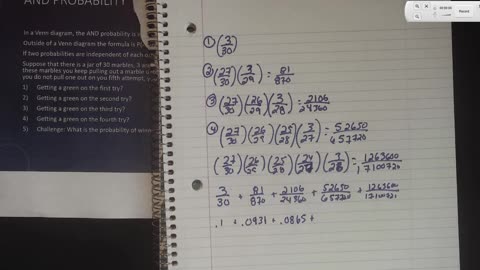 AND PROBABILITY
In a Venn diagram, the AND probability is
Outside of a Venn diagram the formula is P
If two probabilities are independent of each ou
Suppose that there is a jar of 30 marbles, 3 are
these marbles you keep pulling out a marble unt
you do not pull one out on you fifth attempt, y
1) Getting a green on the first try?
2) Getting a green on the second try?
3) Getting a green on the third try?
4) Getting a green on the fourth try?
5) Challenge: What is the probability of winn
① (3/30)
② (27/30)(3/29) = 81/870
③ (27/30)(26/29)(3/28) = 2106/24360
④ (27/30)(26/29)(25/28)(3/27) = 52650/657720
(27/30)(26/29)(25/28)(24/27)
3/30 + 81/870 + 2106/24360 + 52650/657720 +
.1 + .0931 + .0865 +